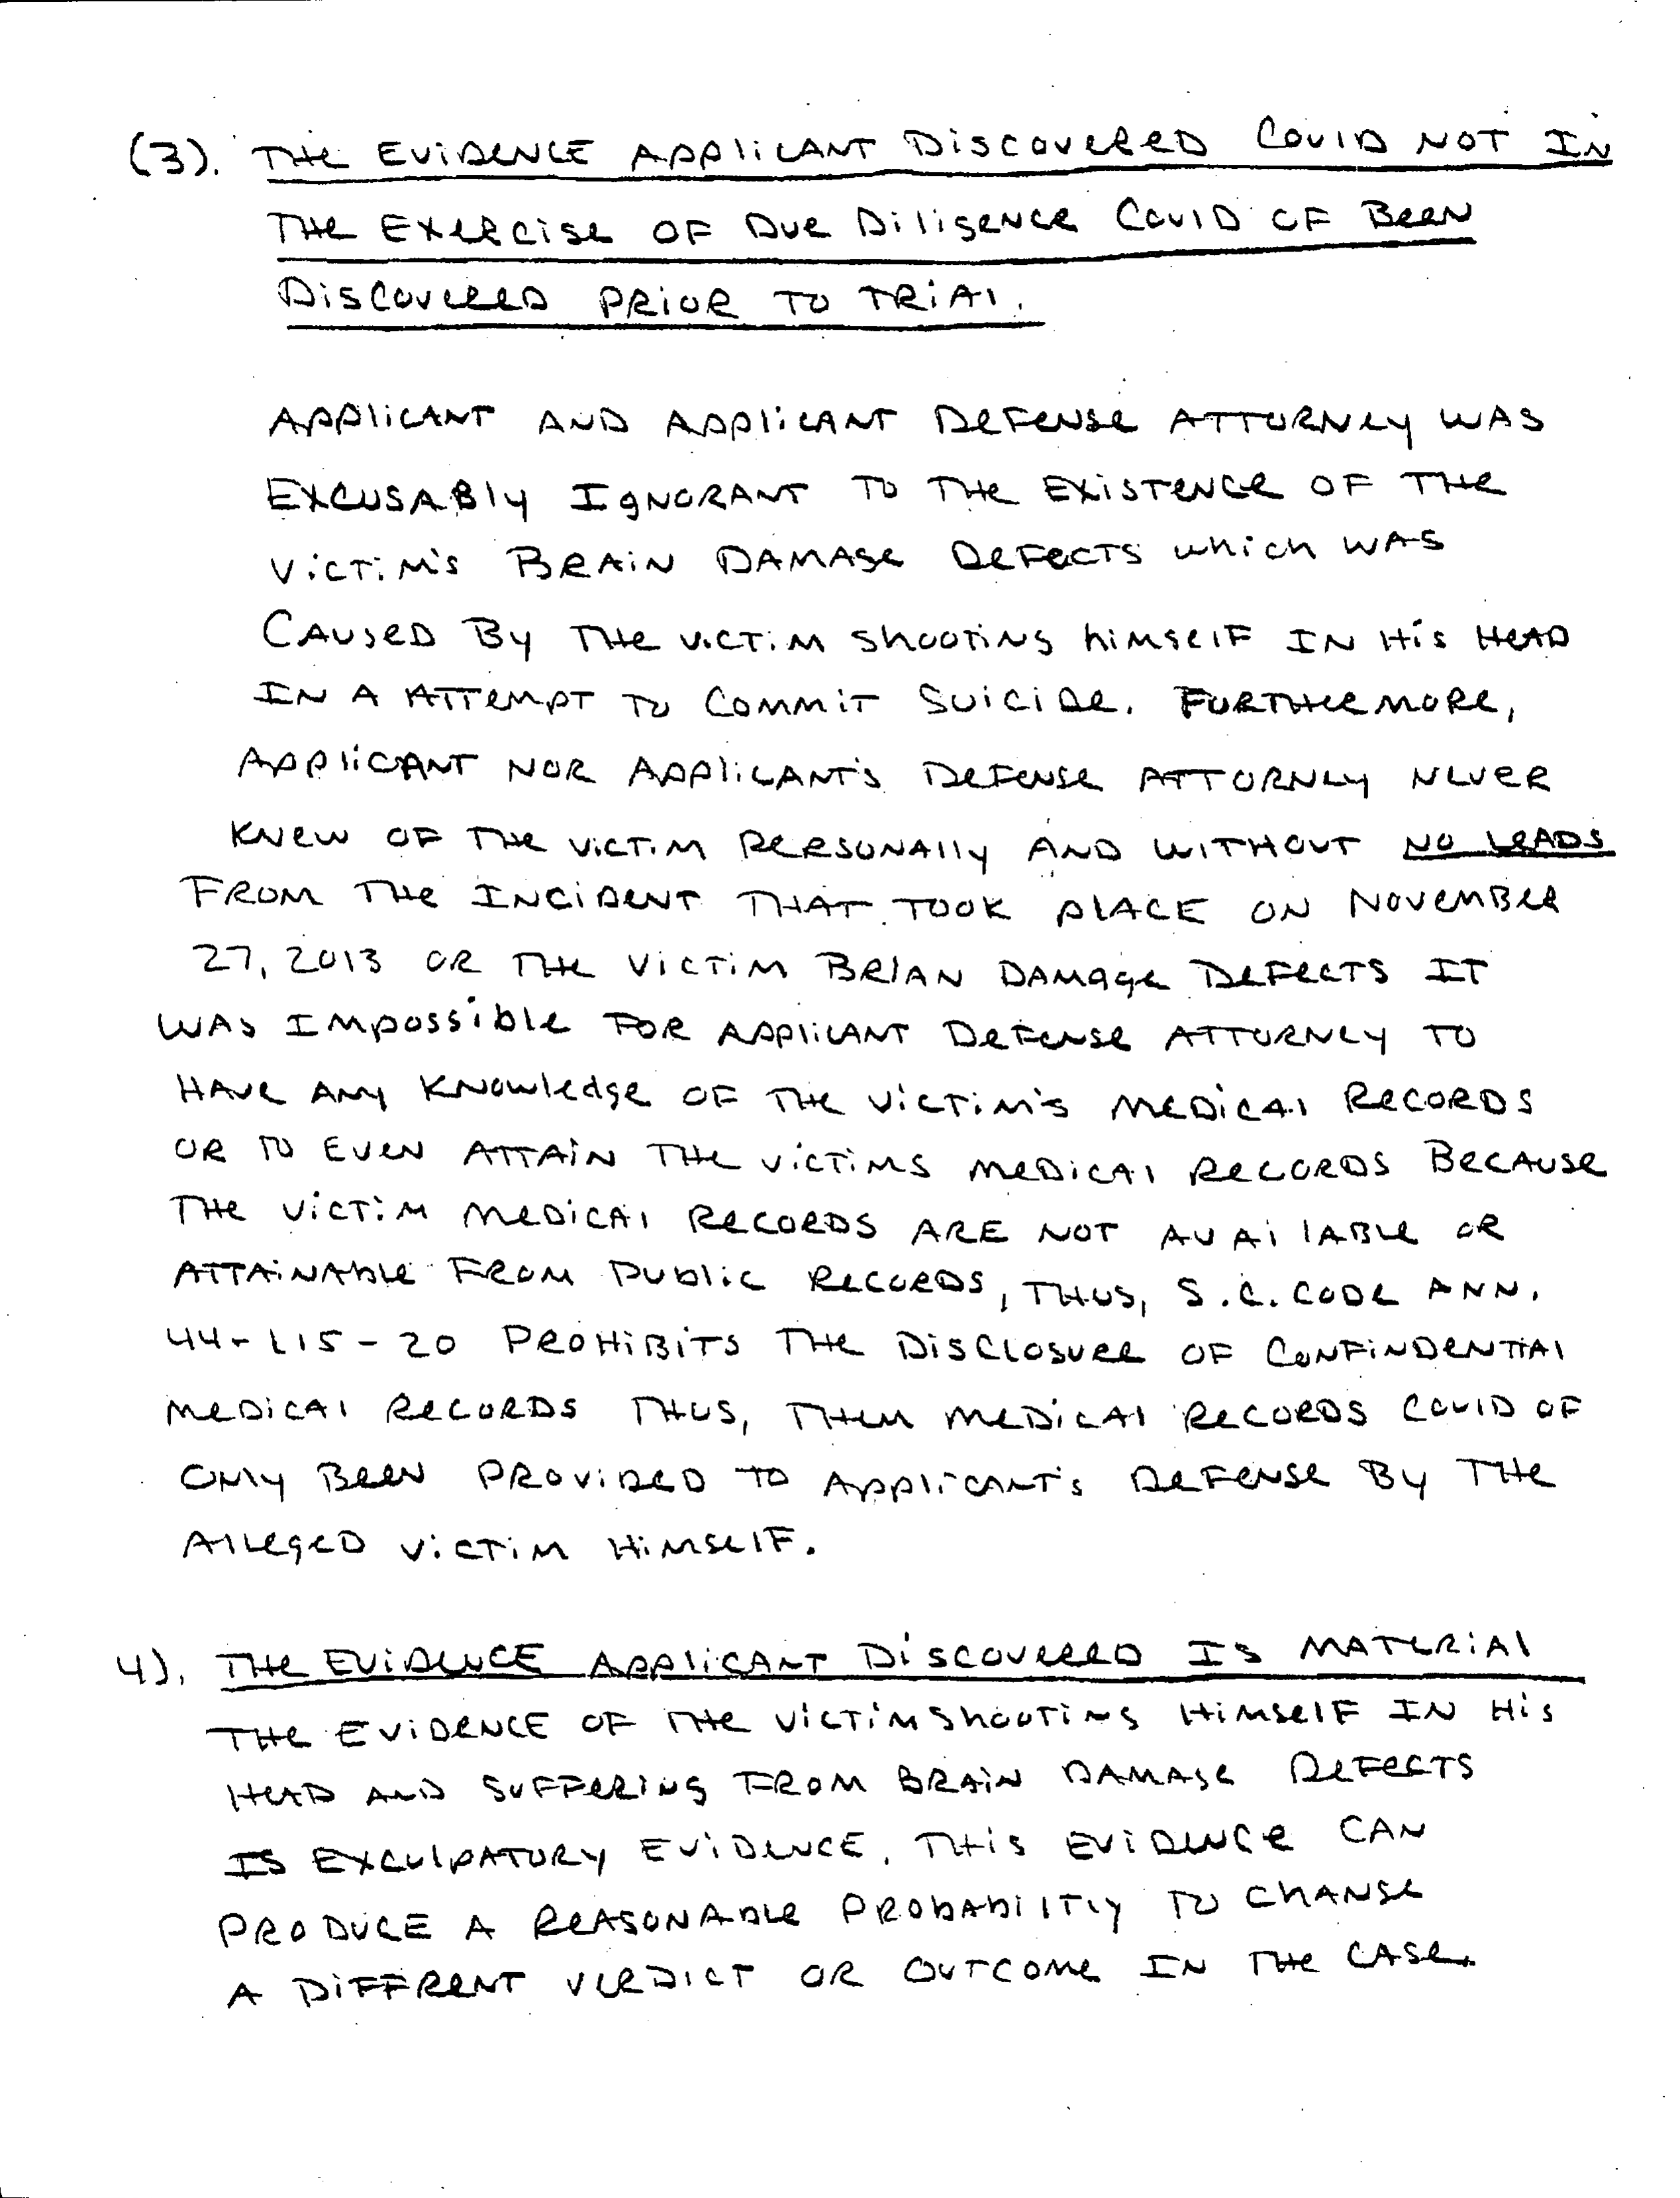 (3). THE EVIDENCE APPLICANT DISCOVERED COULD NOT IN
THE EXERCISE OF DUE DILIGENCE COULD OF BEEN
DISCOVERED PRIOR TO TRIAL.
APPLICANT AND APPLICANT DEFENSE ATTORNEY WAS
EXCUSABLY IGNORANT TO THE EXISTENCE OF THE
VICTIM'S BRAIN DAMAGE DEFECTS which WAS
CAUSED BY THE VICTIM shooting himself IN His HEAD
IN A ATTEMPT TO COMMIT SUICIDE. FURTHERMORE,
APPLICANT NOR APPLICANT'S DEFENSE ATTORNEY NEVER
KNEW OF THE VICTIM PERSONALLY AND WITHOUT NO LEADS
FROM THE INCIDENT THAT TOOK PLACE ON NOVEMBER
27, 2013 OR THE VICTIM BRIAN DAMAGE DEFECTS IT
WAS IMPOSSIBLE FOR APPLICANT DEFENSE ATTORNEY TO
HAVE ANY KNOWLEDGE OF THE VICTIM'S MEDICAL RECORDS
OR TO EVEN ATTAIN THE VICTIMS MEDICAL RECORDS BECAUSE
THE VICTIM MEDICAL RECORDS ARE NOT AVAILABLE OR
ATTAINABLE FROM PUBLIC RECORDS, THUS, S.C. CODE ANN.
44-115-20 PROHIBITS THE DISCLOSURE OF CONFINDENTIAL
MEDICAL RECORDS THUS, THEM MEDICAL RECORDS COULD OF
ONLY BEEN PROVIDED TO APPLICANT'S DEFENSE BY THE
ALLEGED VICTIM HIMSELF.
4). THE EVIDENCE APPLICANT DISCOVERED IS MATERIAL
THE EVIDENCE OF THE VICTIM SHOOTING HIMSELF IN His
HEAD AND SUFFERING FROM BRAIN DAMAGE DEFECTS
IS EXCULPATORY EVIDENCE. THIS EVIDENCE CAN
PRODUCE A REASONABLE PROBABILTIY TO CHANGE
A DIFFRENT VERDICT OR OUTCOME IN THE CASE.